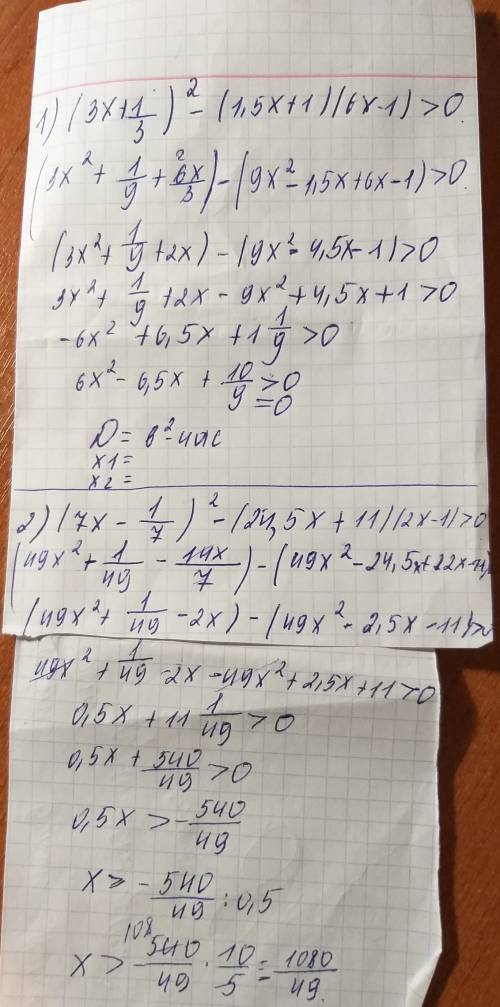 1) (3x+1/3)² - (1,5x+1)(6x-1) > 0
(3x² + 1/9 + 6x/3) - (9x² - 1,5x + 6x - 1) > 0
(3x² + 1/9 + 2x) - (9x² - 4,5x - 1) > 0
3x² + 1/9 + 2x - 9x² + 4,5x + 1 > 0
-6x² + 6,5x + 1 1/9 > 0
6x² - 6,5x + 10/9 > 0
= 0
D = в² - 4ac
x1 =
x2 =
2) (7x - 1/7)² - (24,5x + 11)(2x-1) > 0
(49x² + 1/49 - 14x/7) - (49x² - 24,5x + 22x - 11)
(49x² + 1/49 - 2x) - (49x² - 2,5x - 11) > 0
49x² + 1/49 - 2x - 49x² + 2,5x + 11 > 0
0,5x + 11 1/49 > 0
0,5x + 540/49 > 0
0,5x > - 540/49
x > - 540/49 : 0,5
108
x > - 540/49 · 10/5 = 1080/49